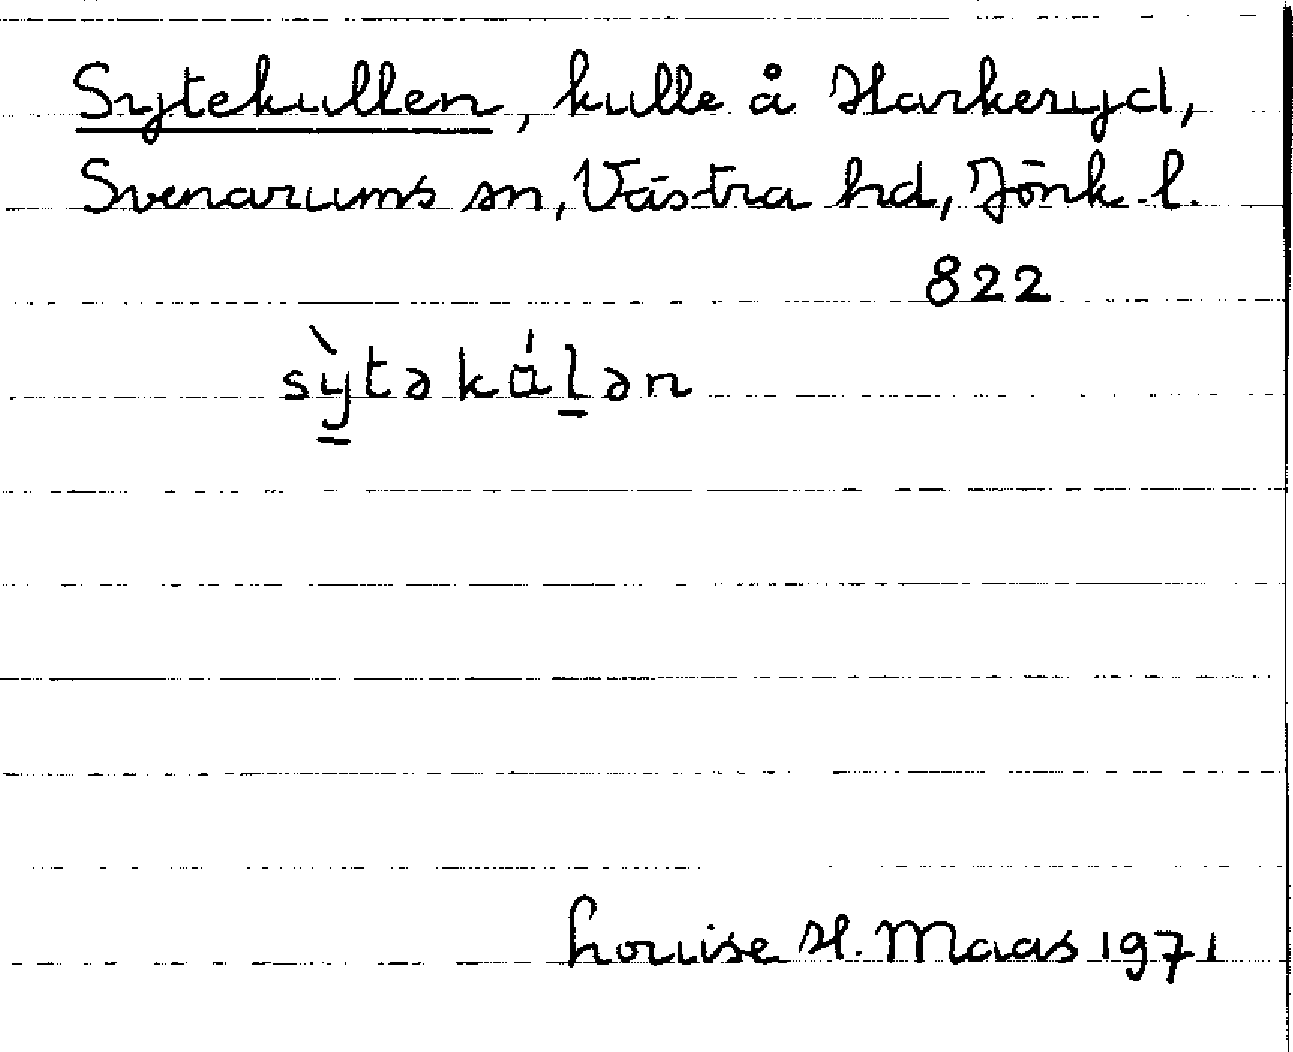 Sytekullen, kulle å Harkeryd,
Svenarums sn, Västra hd, Jönk. l.
822
sỳ̠təkɑ́l̠ən
Louise H. Maas 1971